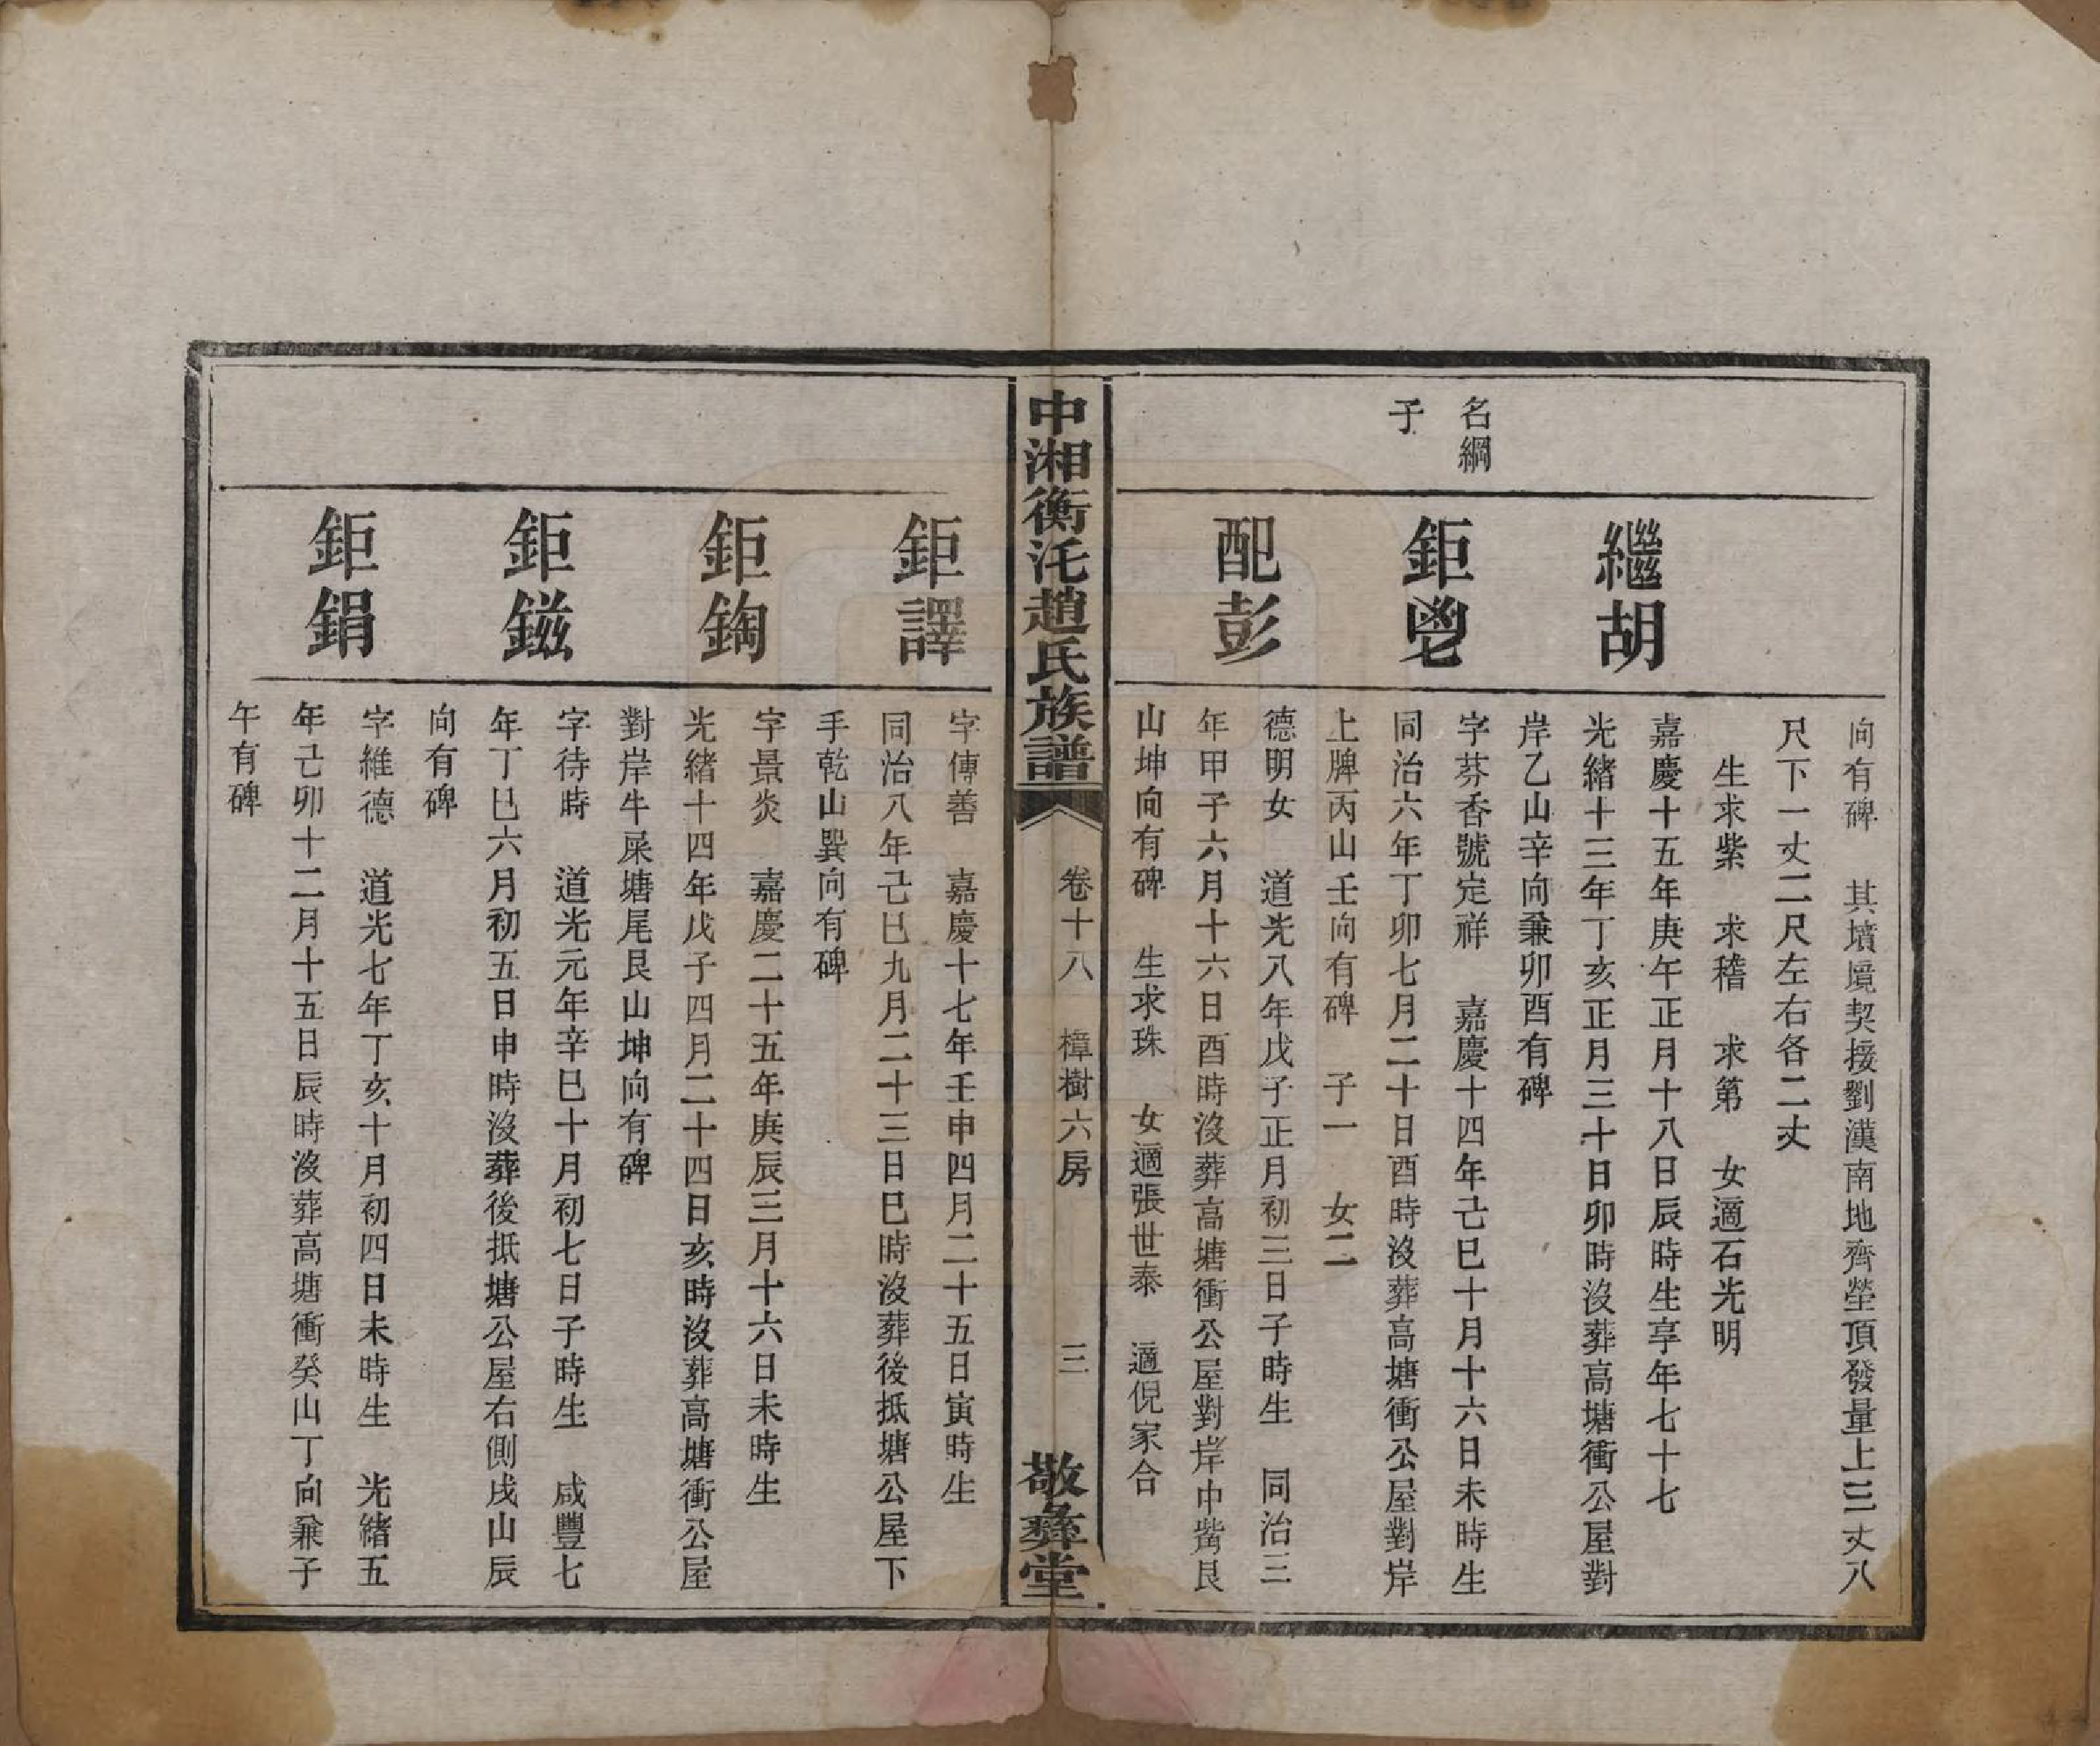 向有碑　其墳境契接劉漢南地齊塋頂發量上三丈八
尺下一丈二尺左右各二丈
生求紫　求稽　求第　女適石光明
繼胡
嘉慶十五年庚午正月十八日辰時生享年七十七
光緒十三年丁亥正月三十日卯時沒葬高塘衝公屋對
岸乙山辛向兼卯酉有碑
名綱
子
鉅
字芬香號定祥　嘉慶十四年己巳十月十六日未時生
同治六年丁卯七月二十日酉時沒葬高塘衝公屋對岸
上牌丙山壬向有碑　子一　女二
配彭
德明女　道光八年戊子正月初三日子時生　同治三
年甲子六月十六日酉時沒葬高塘衝公屋對岸中嘴艮
山坤向有碑　生求珠　女適張世泰　適倪家合
中湘衡汑趙氏族譜
卷十八　樟樹六房　三
敬彝堂
鉅譯
字傳善　嘉慶十七年壬申四月二十五日寅時生
同治八年己巳九月二十三日巳時沒葬後抵塘公屋下
手乾山巽向有碑
鉅鋾
字景炎　嘉慶二十五年庚辰三月十六日未時生
光緒十四年戊子四月二十四日亥時沒葬高塘衝公屋
對岸牛屎塘尾艮山坤向有碑
鉅鎡
字待時　道光元年辛巳十月初七日子時生　咸豐七
年丁巳六月初五日申時沒葬後抵塘公屋右側戌山辰
向有碑
鉅鋗
字維德　道光七年丁亥十月初四日未時生　光緒五
年己卯十二月十五日辰時沒葬高塘衝癸山丁向兼子
午有碑